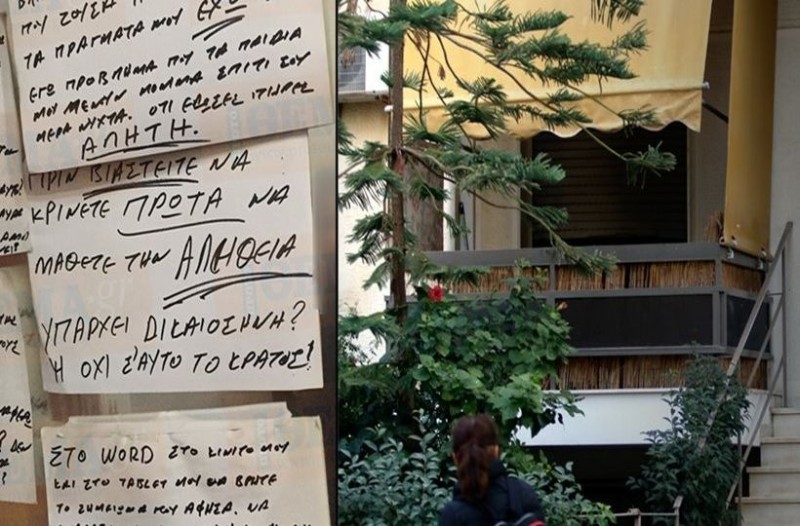 ΠΟΥ ΖΟΥΣΑ
ΤΑ ΠΡΑΓΜΑΤΑ ΜΟΥ ΕΧΩ
ΕΓΩ ΠΡΟΒΛΗΜΑ ΠΟΥ ΤΑ ΠΑΙΔΙΑ
ΜΟΥ ΜΕΝΟΥΝ ΣΠΙΤΙ ΣΟΥ
ΜΕΡΑ ΝΥΧΤΑ. ΟΤΙ ΕΔΩΣΕΣ ΠΗΡΕΣ
ΑΛΗΤΗ.
ΠΡΙΝ ΒΙΑΣΤΕΙΤΕ ΝΑ
ΚΡΙΝΕΤΕ ΠΡΩΤΑ ΝΑ
ΜΑΘΕΤΕ ΤΗΝ ΑΛΗΘΕΙΑ
ΥΠΑΡΧΕΙ ΔΙΚΑΙΟΣΗΝΗ?
Ή ΟΧΙ Σ'ΑΥΤΟ ΤΟ ΚΡΑΤΟΣ!
ΣΤΟ WORD ΣΤΟ ΚΙΝΙΤΟ ΜΟΥ
ΚΑΙ ΣΤΟ TABLET ΜΟΥ ΘΑ ΒΡΗΤΕ
ΤΟ ΣΗΜΕΙΩΜΑ ΠΟΥ ΑΦΗΣΑ. ΝΑ